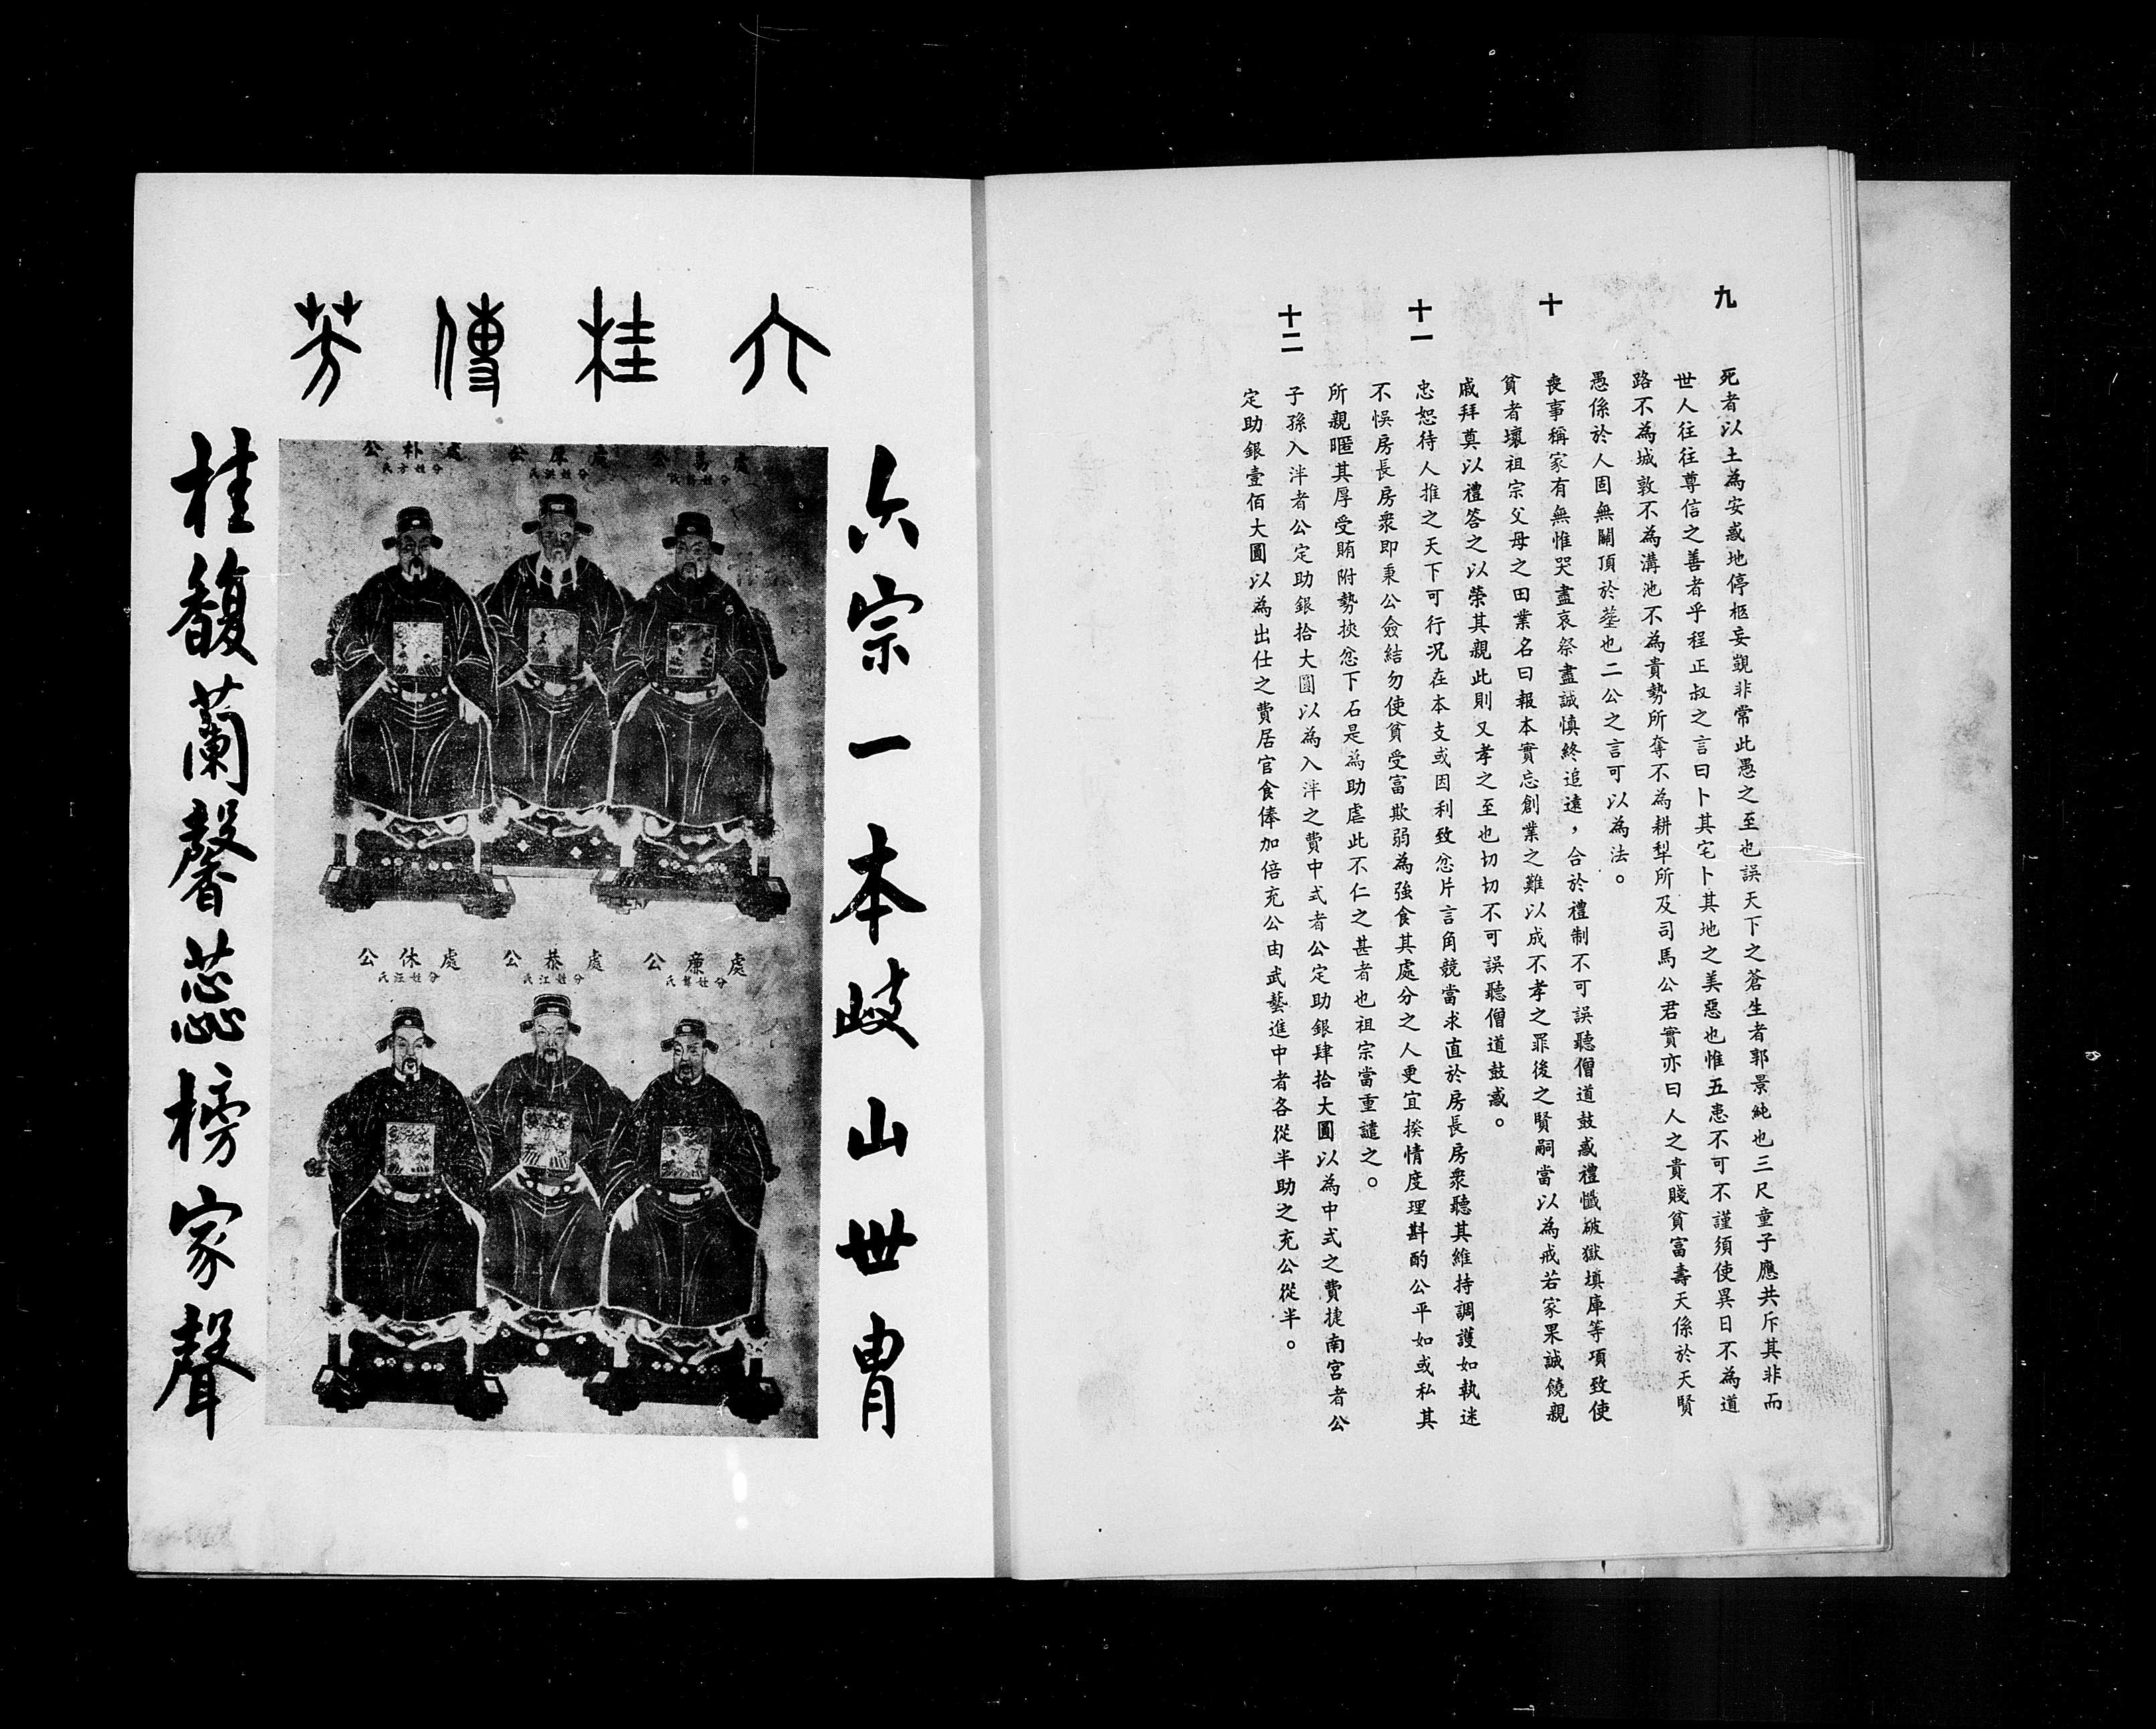 九
死者以土為安惑地停柩妄覬非常此愚之至也誤天下之蒼生者郭景純也三尺童子應共斥其非而
世人往往尊信之善者乎程正叔之言曰卜其宅卜其地之美惡也惟五患不可不謹須使異日不為道
路不為城敦不為溝池不為貴勢所奪不為耕犁所及司馬公君實亦曰人之貴賤貧富壽夭係於天賢
愚係於人固無關頂於塟也二公之言可以為法。
十
喪事稱家有無惟哭盡哀祭盡誠慎終追遠，合於禮制不可誤聽僧道鼓惑禮懺破獄填庫等項致使
貧者壞祖宗父母之田業名曰報本實忘創業之難以成不孝之罪後之賢嗣當以為戒若家果誠饒親
戚拜奠以禮答之以榮其親此則又孝之至也切切不可誤聽僧道鼓惑。
十一
忠恕待人推之天下可行況在本支或因利致忿片言角競當求直於房長房衆聽其維持調護如執迷
不悞房長房衆即秉公僉結勿使貧受富欺弱為強食其處分之人更宜揆情度理斟酌公平如或私其
所親暱其厚受賄附勢挾忿下石是為助虐此不仁之甚者也祖宗當重譴之。
十二
子孫入泮者公定助銀拾大圓以為入泮之費中式者公定助銀肆拾大圓以為中式之費捷南宮者公
定助銀壹佰大圓以為出仕之費居官食俸加倍充公由武藝進中者各從半助之充公從半。
六桂傳芳
六宗一本歧山世冑
處
公
處厚公
分姓洪氏
處朴公
分姓方氏
處廉公
分姓龔氏
處恭公
分姓江氏
處休公
分姓汪氏
桂馥蘭馨蕊榜家聲